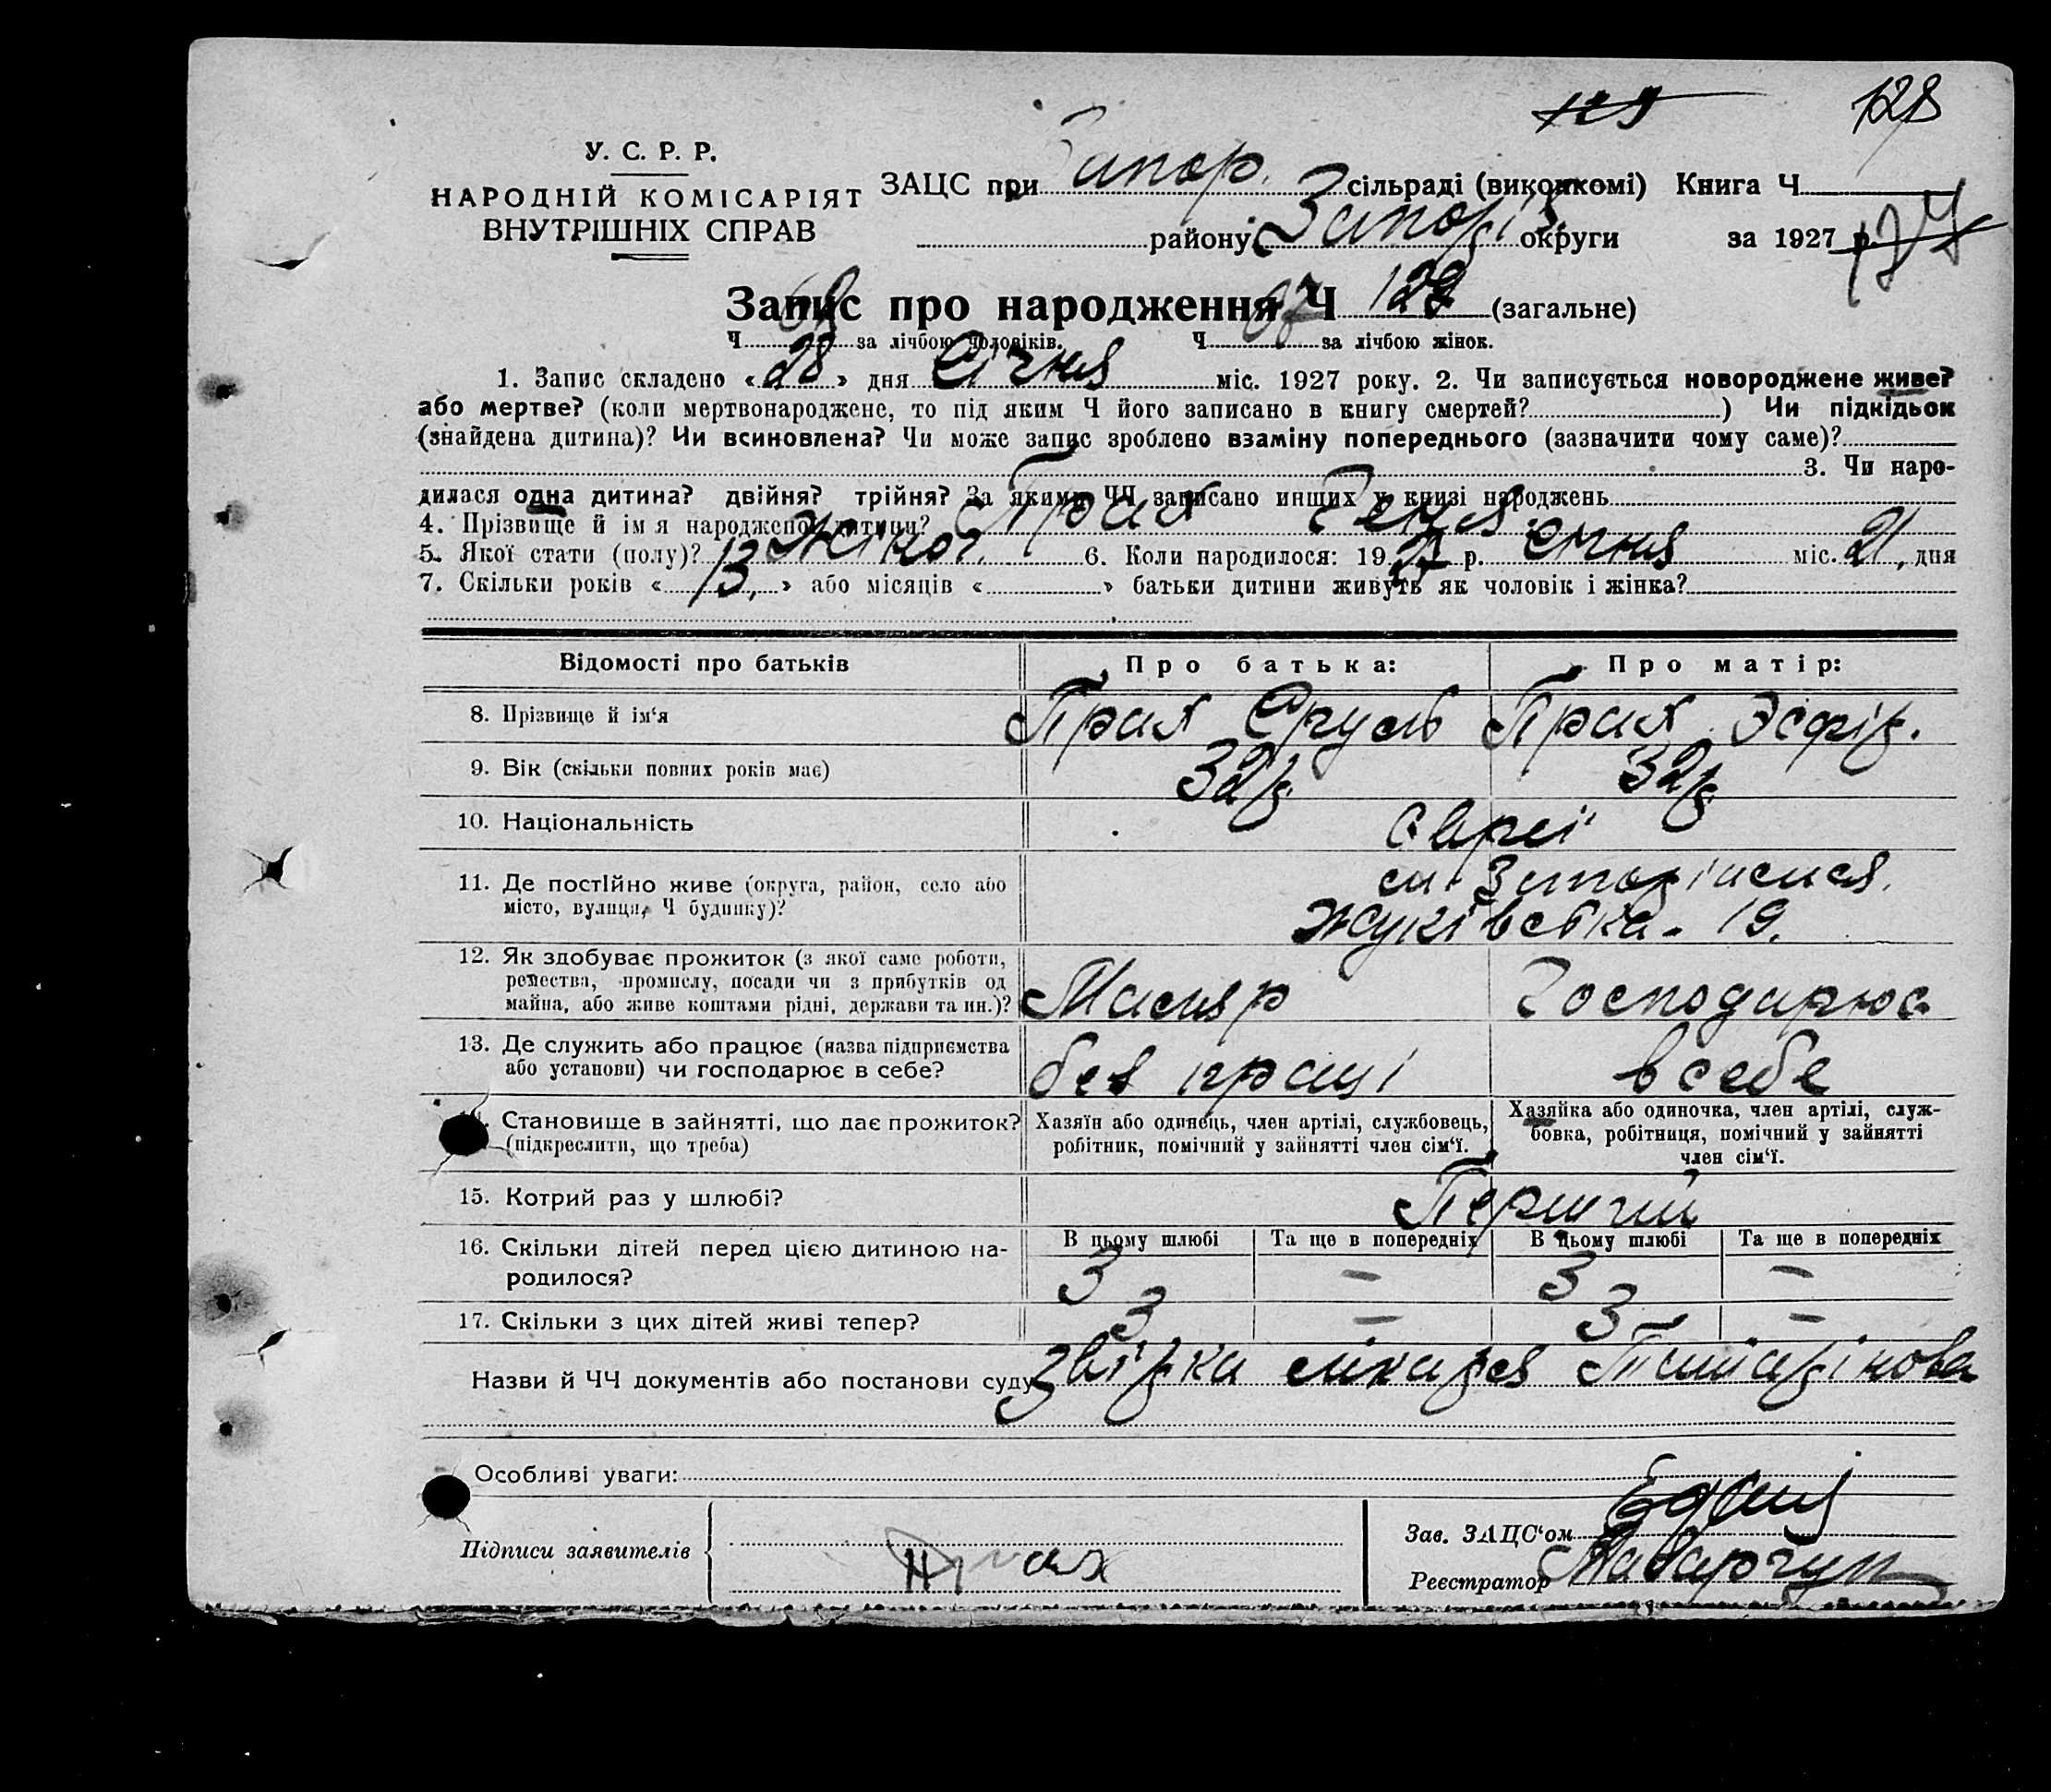 129 128
У. С. Р. Р.
НАРОДНІЙ КОМІСАРІЯТ
ВНУТРІШНІХ СПРАВ
ЗАЦС при Запор. сільраді (виконкомі) Книга Ч
району Запоріз. округи за 1927 р.
Запис про народження Ч 128 (загальне)
Ч за лічбою чоловіків. Ч 67 за лічбою жінок.
1. Запис складено «28» дня Січня міс. 1927 року. 2. Чи записується новороджене живе?
або мертве? (коли мертвонароджене, то під яким Ч його записано в книгу смертей? ) Чи підкідьок
(знайдена дитина)? Чи всиновлена? Чи може запис зроблено взаміну попереднього (зазначити чому саме)?
3. Чи наро-
дилася одна дитина? двійня? трійня? За якими ЧЧ записано инших у книзі народжень
4. Прізвище й ім я народженої дитини? Прах Геня
5. Якої стати (полу)? Жіноч. 6. Коли народилося: 1927 р. січня міс. 21, дня
7. Скільки років «13,» або місяців « » батьки дитини живуть як чоловік і жінка?
Відомості про батьків Про батька: Про матір:
8. Прізвище й ім‘я Прах Сруль Прах Эсфір.
9. Вік (скільки повних років має) 32 р. 32 р.
10. Національність Євреї
11. Де постійно живе (округа, район, село або
місто, вулиця, Ч будинку)?
Жуківська - 19.
12. Як здобуває прожиток (з якої саме роботи,
ремества, промислу, посади чи з прибутків од
майна, або живе коштами рідні, держави та ин.)? Маляр Господарює
13. Де служить або працює (назва підприємства
або установи) чи господарює в себе? без праці в себе
14. Становище в зайнятті, що дає прожиток?
(підкреслити, що треба)
Хазяїн або одинець, член артілі, службовець,
робітник, помічний у зайнятті член сім‘ї.
Хазяйка або одиночка, член артілі, служ-
бовка, робітниця, помічний у зайнятті
член сім‘ї.
15. Котрий раз у шлюбі? Перший
16. Скільки дітей перед цією дитиною на-
родилося?
В цьому шлюбі Та ще в попередніх В цьому шлюбі Та ще в попередніх
3 — 3 —
17. Скільки з цих дітей живі тепер? 3 — 3 —
Назви й ЧЧ документів або постанови суду звірка лікаря
Особливі уваги:
Підписи заявителів Прах
Зав. ЗАЦС‘ом
Реєстратор